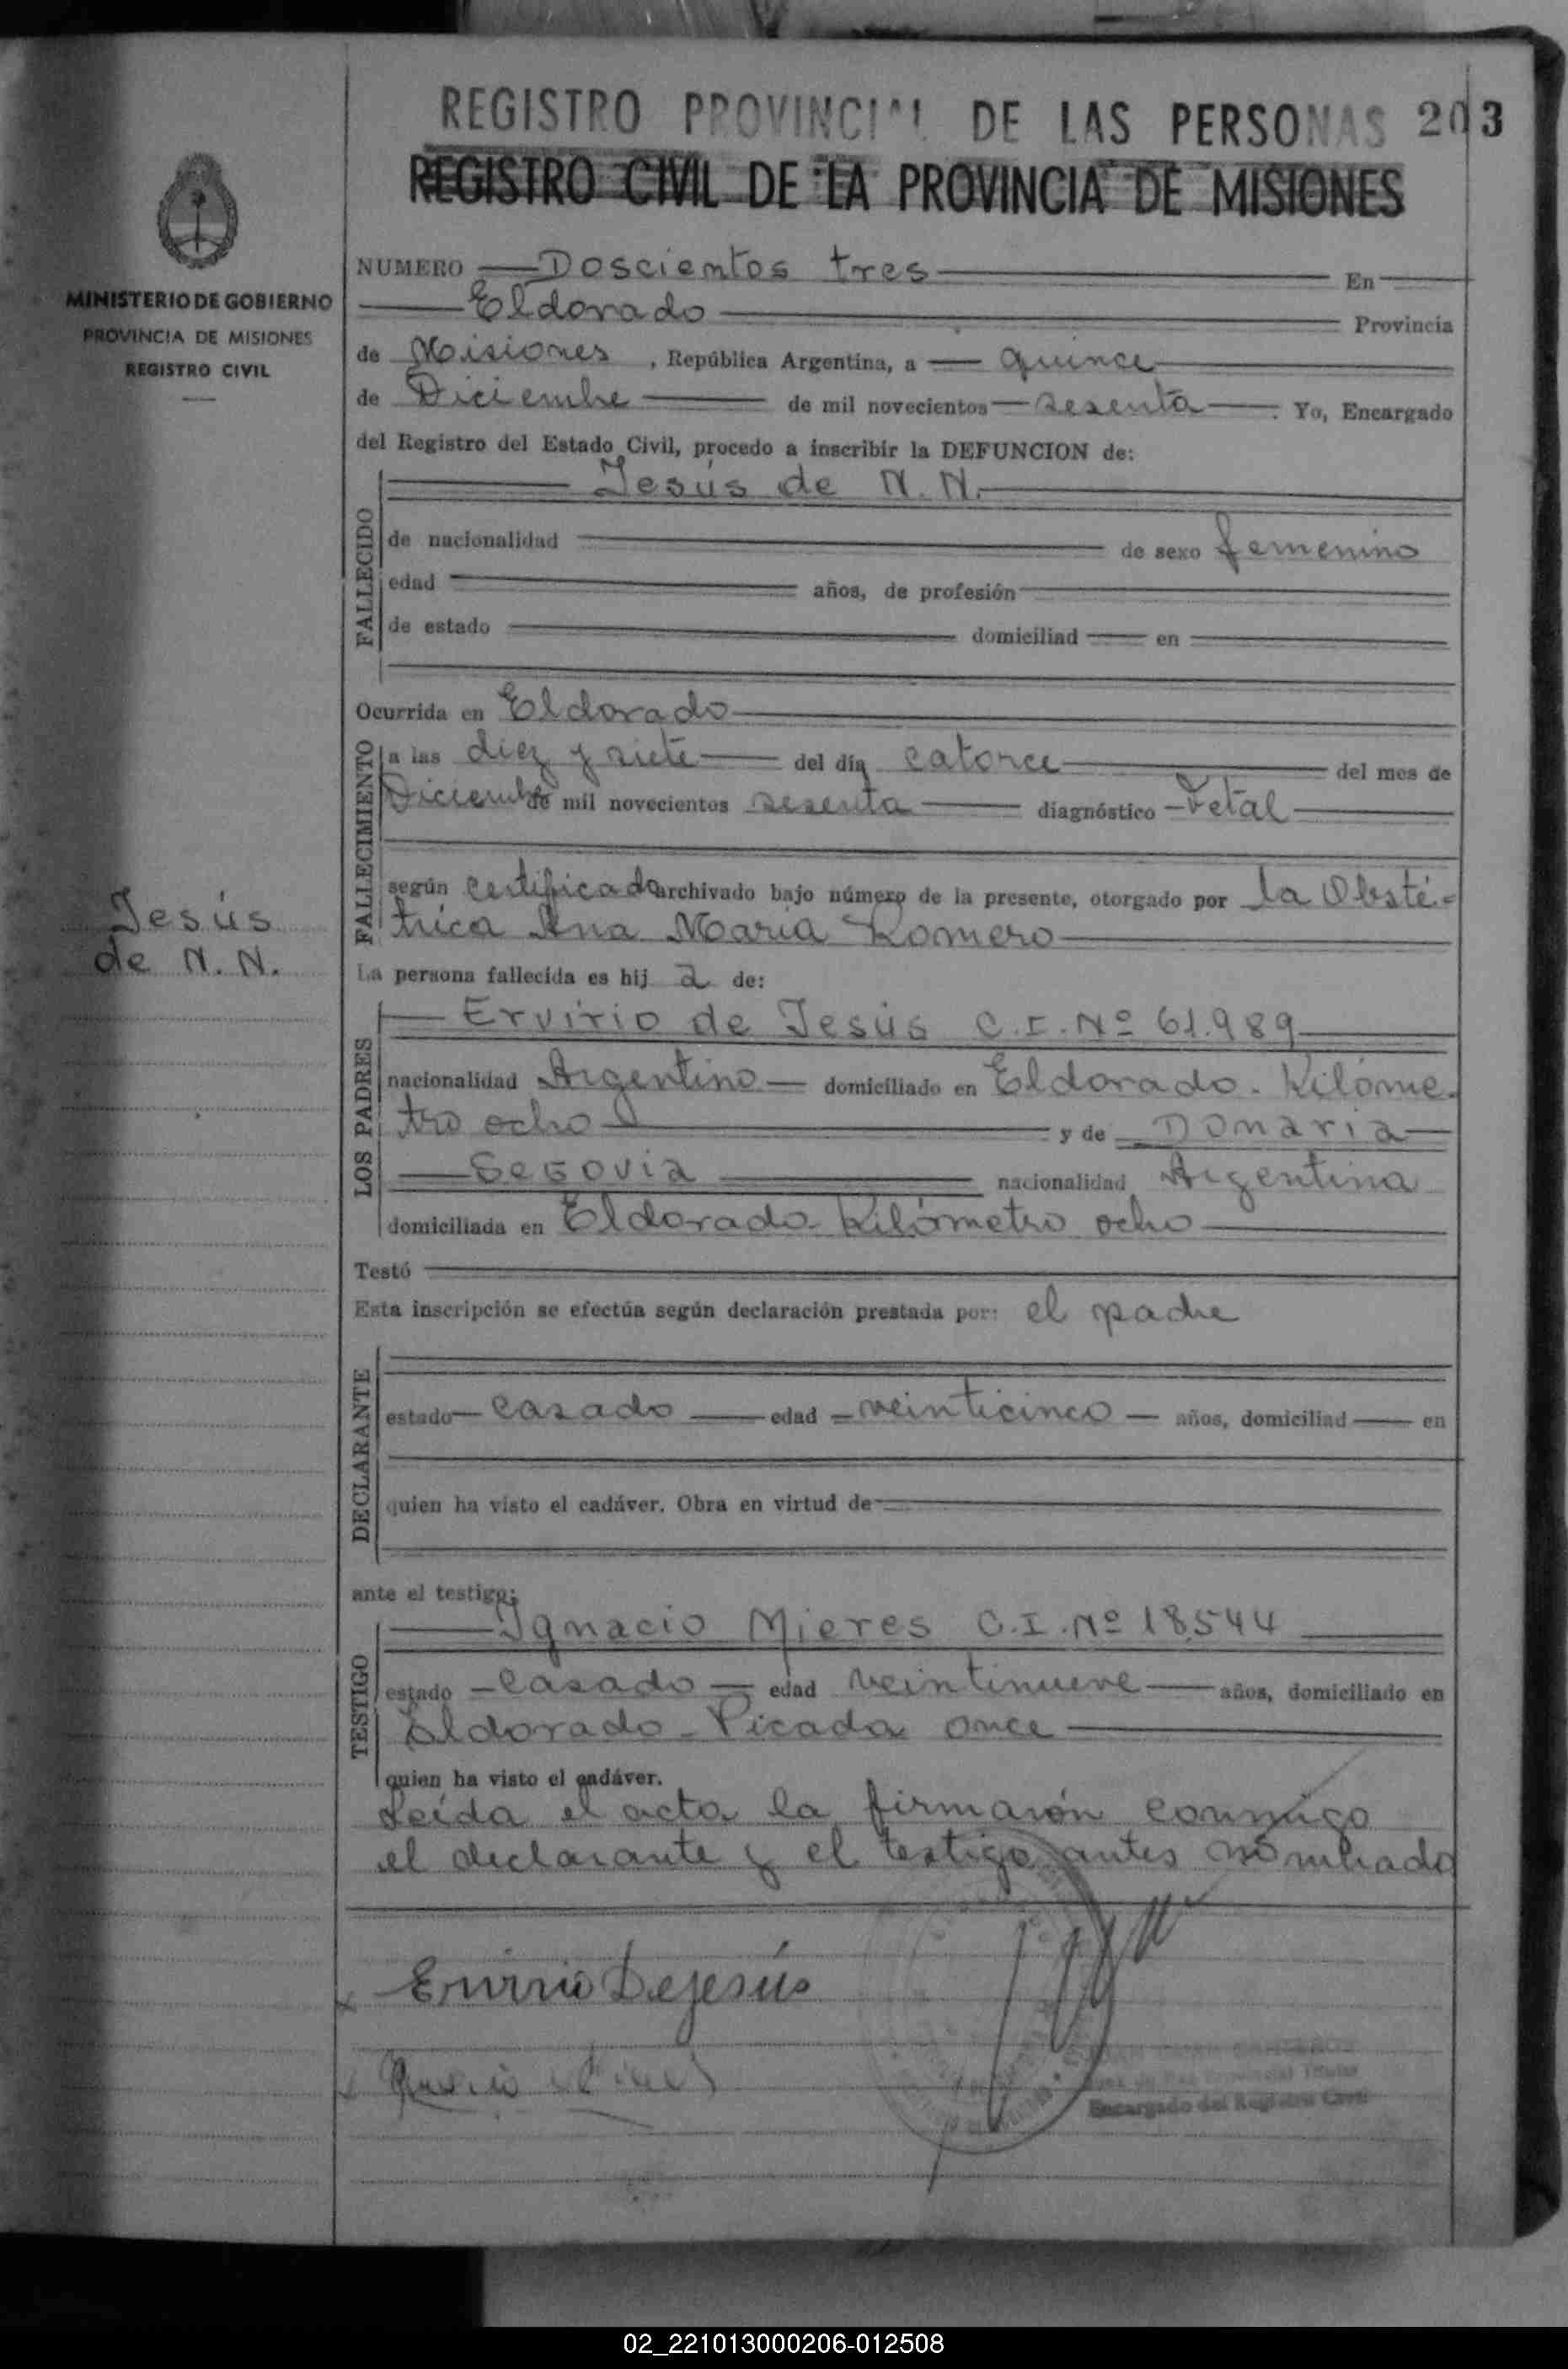 REGISTRO PROVINCIAL DE LAS PERSONAS 203
REGISTRO CIVIL DE LA PROVINCIA DE MISIONES
MINISTERIO DE GOBIERNO
PROVINCIA DE MISIONES
REGISTRO CIVIL
Jesús
de N. N.
NUMERO Doscientos tres En
Eldorado Provincia
de Misiones, República Argentina, a quince
de Diciembre de mil novecientos sesenta. Yo, Encargado
del Registro del Estado Civil, procedo a inscribir la DEFUNCION de:
Jesús de N. N.
FALLECIDO
de nacionalidad de sexo femenino
edad años, de profesión
de estado domiciliad en
Ocurrida en Eldorado
FALLECIMIENTO
a las diez y siete del día catorce del mes de
Diciembre de mil novecientos sesenta diagnóstico Fetal
según certificado archivado bajo número de la presente, otorgado por la Obsté-
trica Ana María Romero
La persona fallecida es hij a de:
LOS PADRES
Ervirio de Jesús C.I. Nº 61.989
nacionalidad Argentino domiciliado en Eldorado - Kilóme-
tro ocho y de Domaria
Segovia nacionalidad Argentina
domiciliada en Eldorado - Kilómetro ocho
Testó
Esta inscripción se efectúa según declaración prestada por: el padre
DECLARANTE
estado casado edad veinticinco años, domiciliad en
quien ha visto el cadáver. Obra en virtud de
ante el testigo:
TESTIGO
Ignacio Mieres C.I. Nº 18.544
estado casado edad veintinueve años, domiciliado en
Eldorado - Picada once
quien ha visto el cadáver.
Leída el acta la firmarón conmigo
el declarante y el testigo antes nombrado
Ervirio Dejesús
Encargado del Registro Civil
02_221013000206-012508